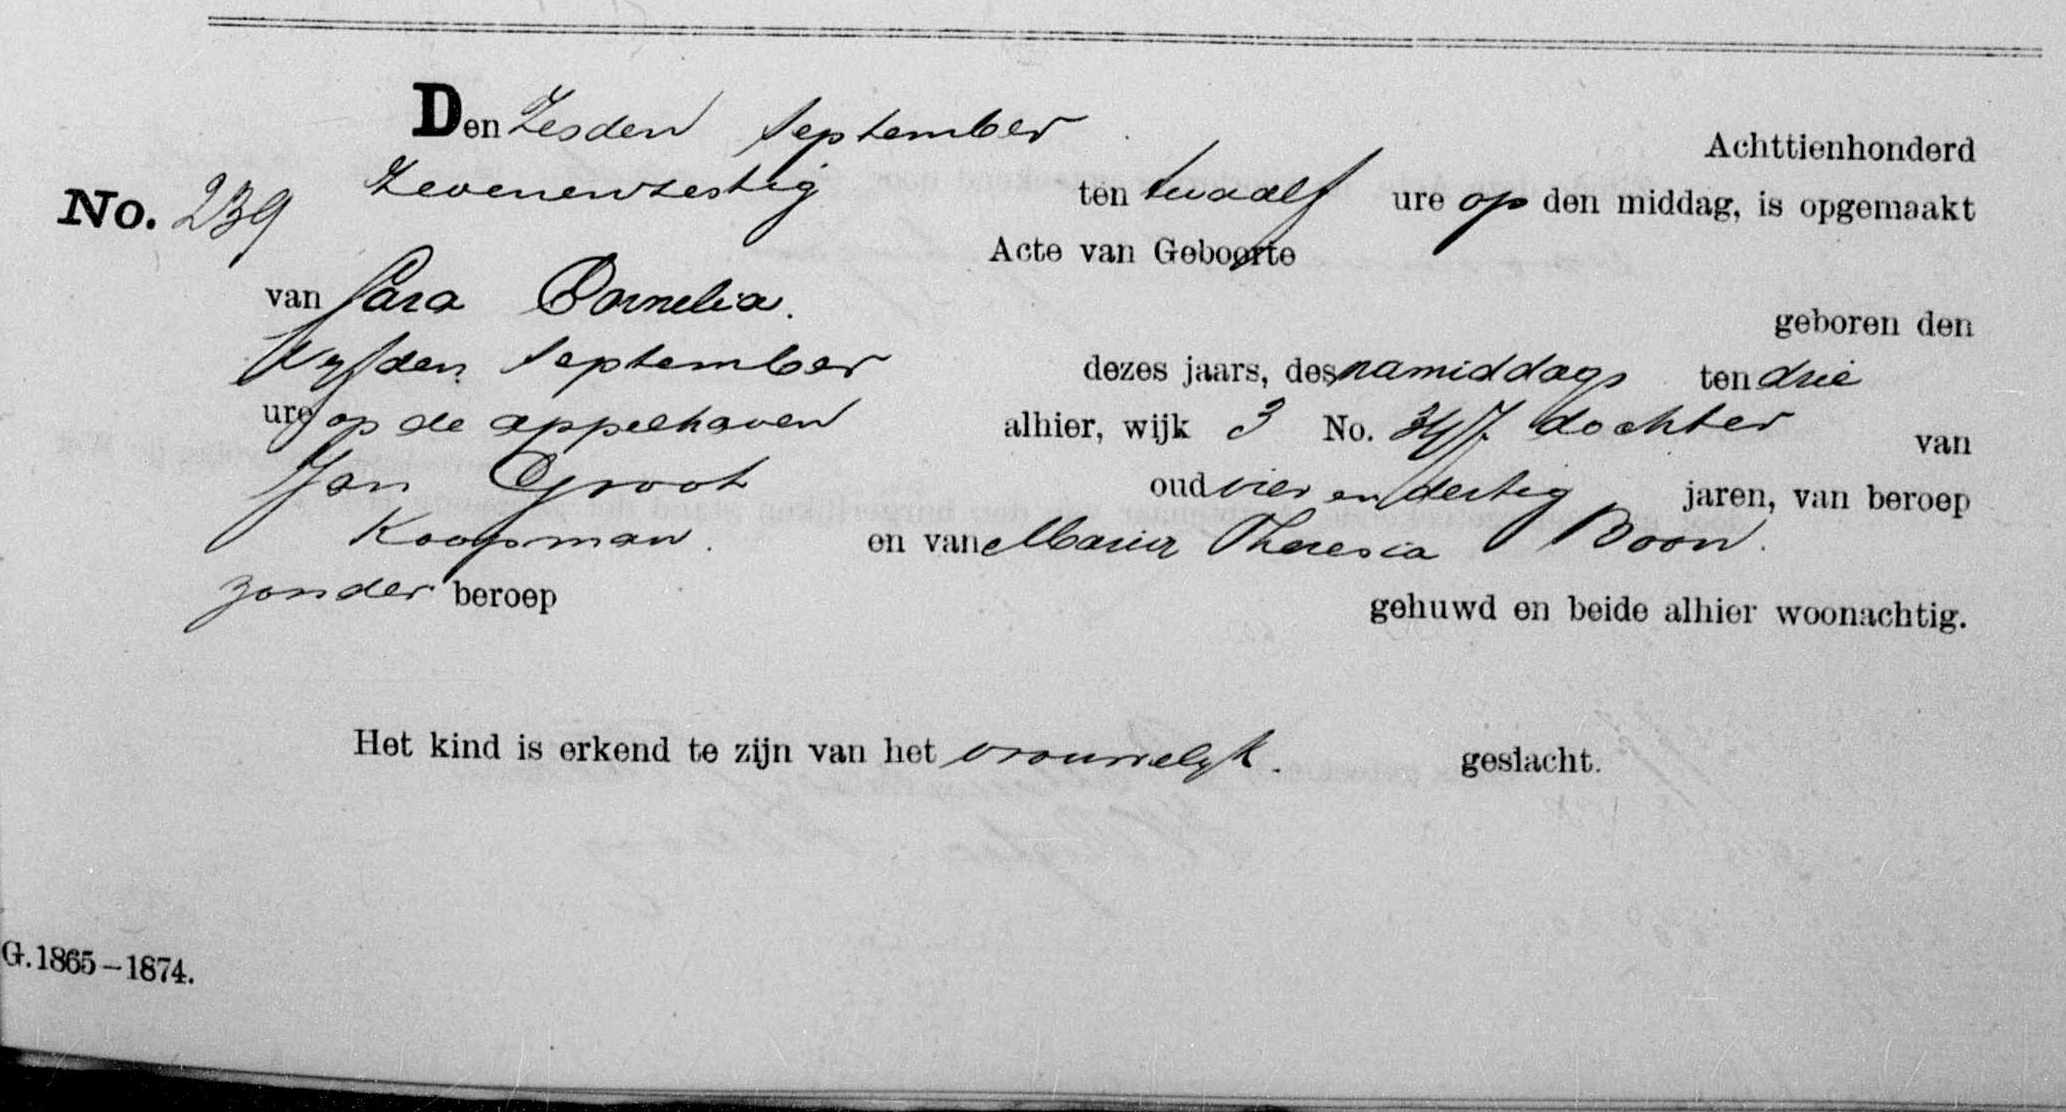 Den Zesden September Achttienhonderd
No. 239 Zevenenzestig ten twaalf ure op den middag, is opgemaakt
Acte van Geboorte
van Sara Cornelia. geboren den
Vyfden September dezes jaars, des namiddags ten drie
ure op de appelhaven alhier, wijk 3 No. 347. dochter van
Jan Groot oud vier en dertig jaren, van beroep
Koopman. en van Maria Theresia Boon.
zonder beroep gehuwd en beide alhier woonachtig.
Het kind is erkend te zijn van het vrouwelyk. geslacht.
G. 1865–1874.